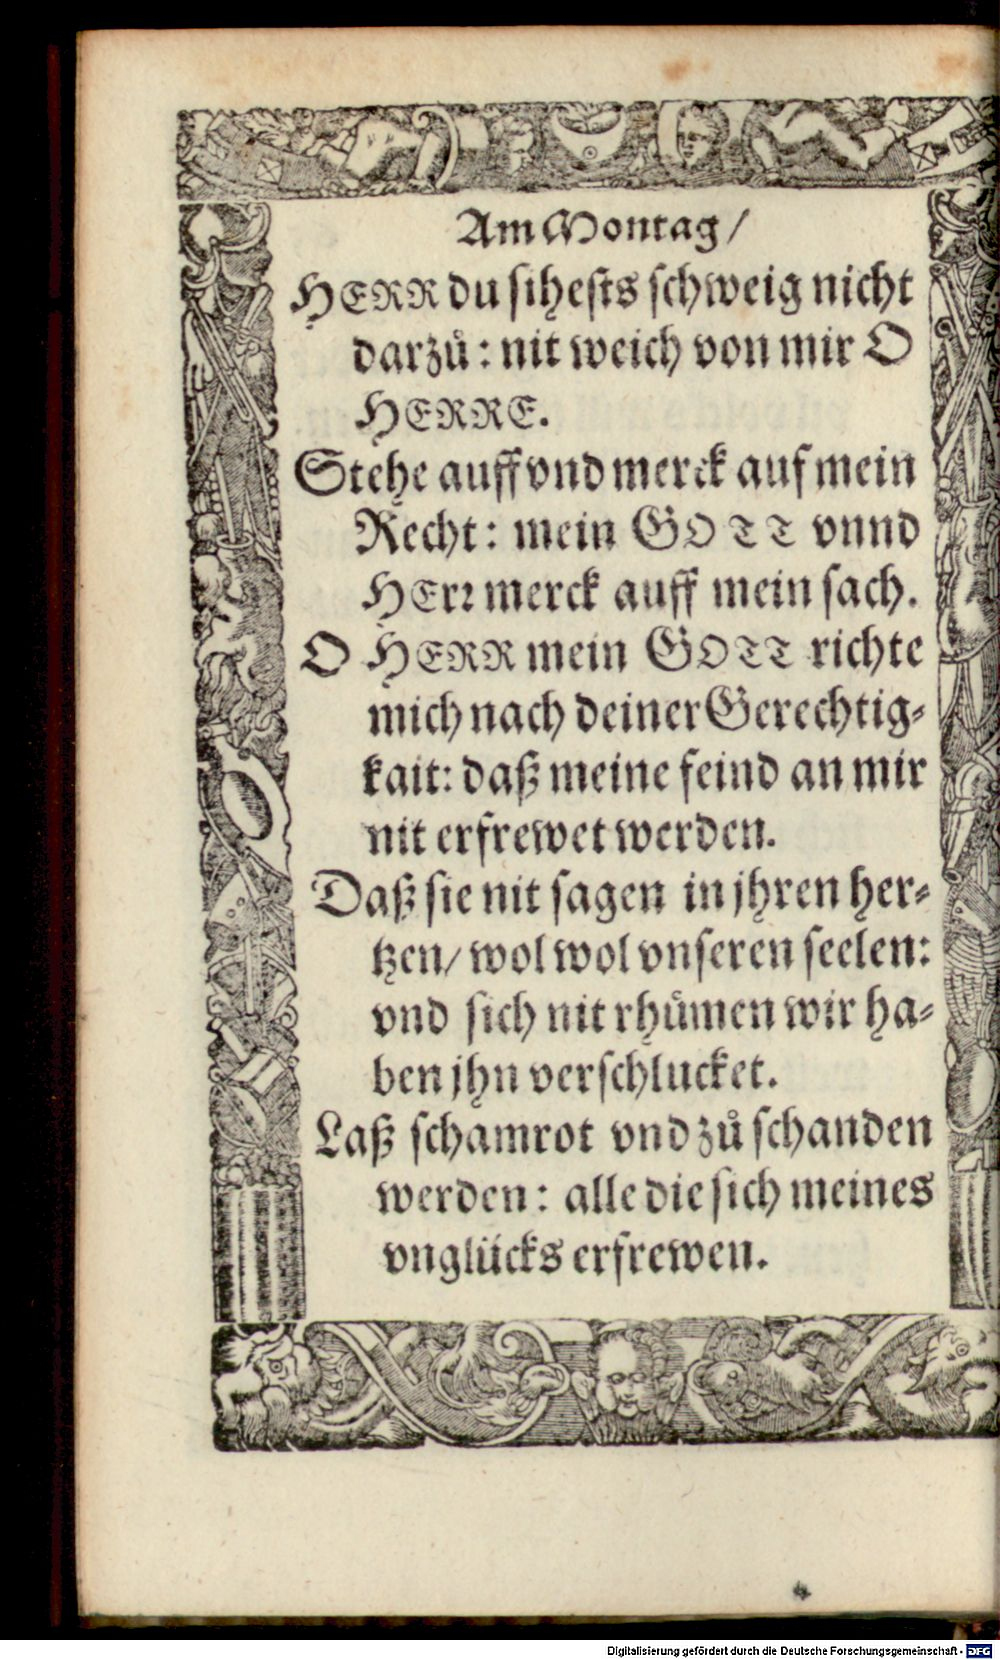 Am Montag/
HERR du sihests schweig nicht
darzuͦ: nit weich von mir O
HERRE.
Stehe auff vnd merck auf mein
Recht: mein GOTT vnnd
HErr merck auff mein sach.
O HERR mein GOTT richte
mich nach deiner Gerechtig⸗
kait: daß meine feind an mir
nit erfrewet werden.
Daß sie nit sagen in jhren her⸗
tzen/ wol wol vnseren seelen:
vnd sich nit rhuͤmen wir ha⸗
ben jhn verschlucket.
Laß schamrot vnd zuͦ schanden
werden: alle die sich meines
vnglücks erfrewen.
Digitalisierung gefördert durch die Deutsche Forschungsgemeinschaft - DFG